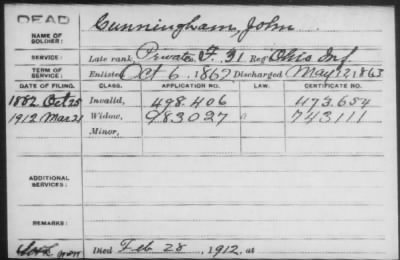 DEAD
NAME OF SOLDIER: Cunningham, John
SERVICE: Late rank, Private F. 31 Reg't Ohio Inf
TERM OF SERVICE: Enlisted Oct 6, 1862 Discharged May 12 1863
DATE OF FILING. CLASS. APPLICATION NO. LAW. CERTIFICATE NO.
1882 Oct 25 Invalid, 498.406 473.654
1912 Mar 21 Widow, 983027 743111
Minor,
ADDITIONAL SERVICES:
REMARKS:
Died Feb 28, 1912, at